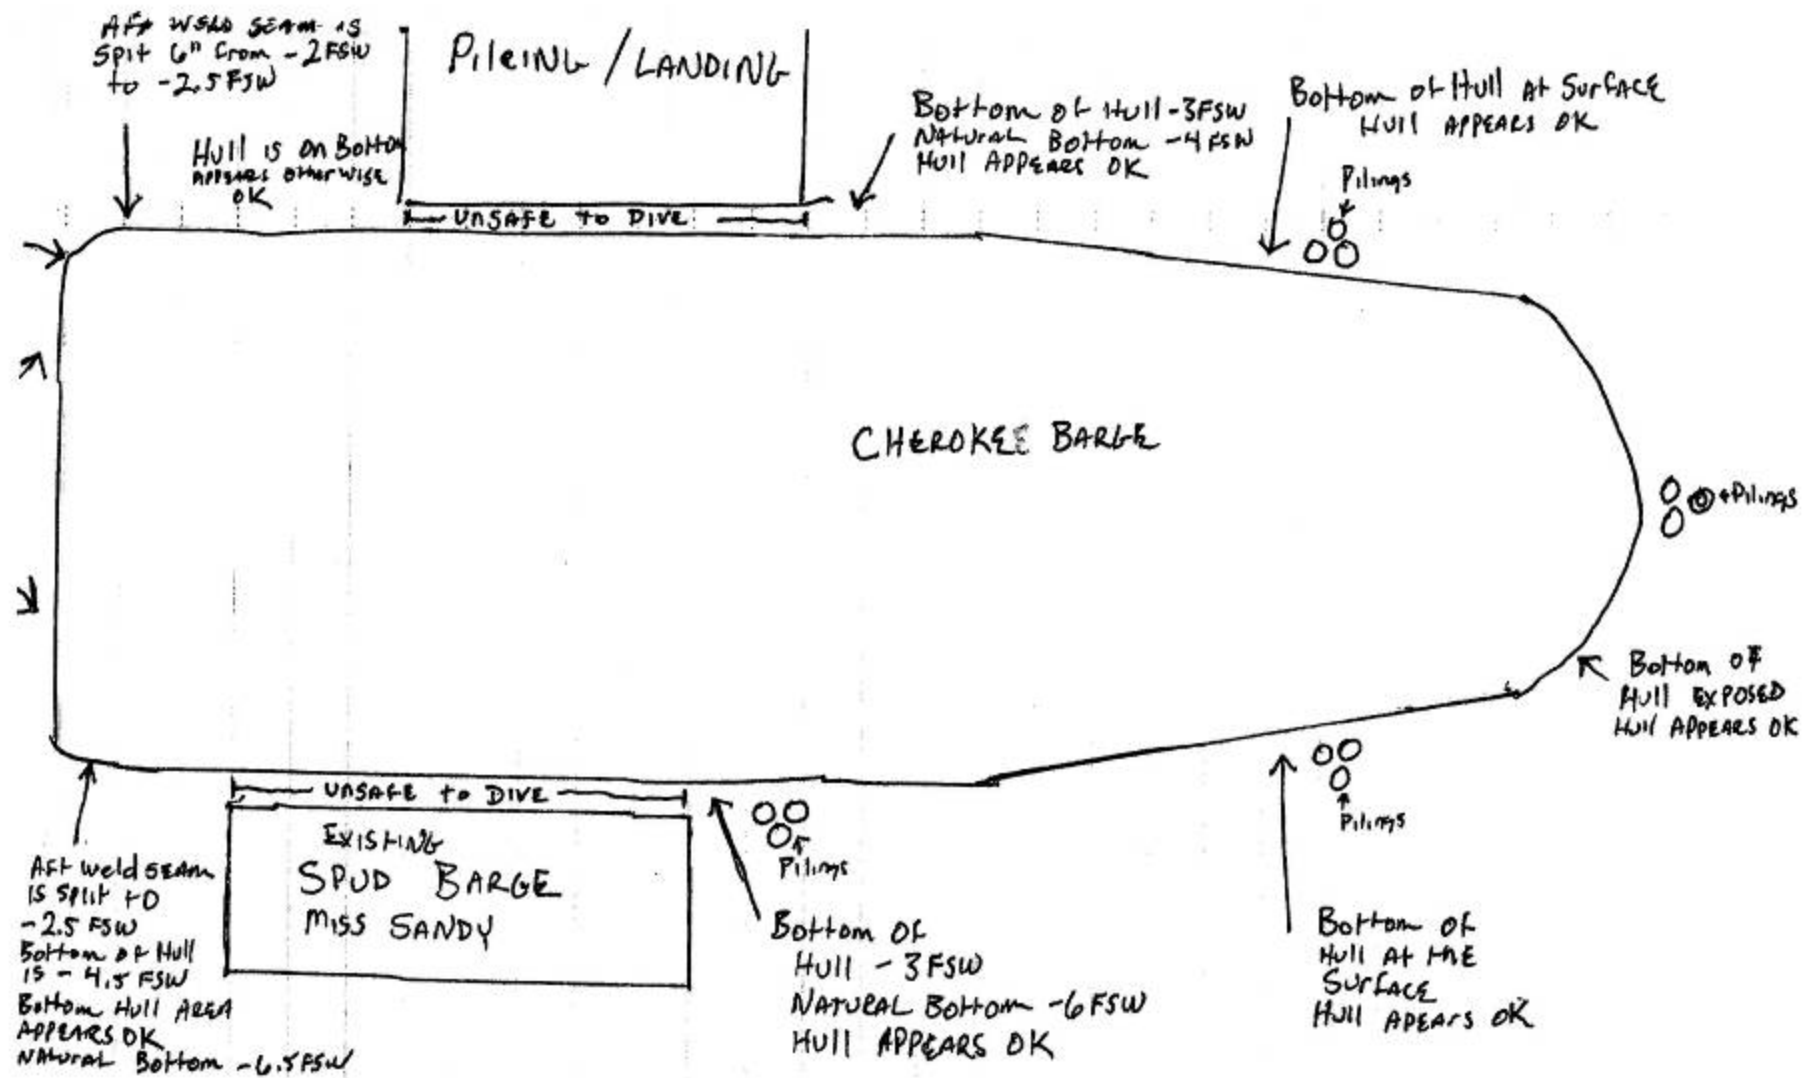 Aft WELD SEAM IS
Split 6" from -2 FSW
to -2.5 FSW
Hull is on Bottom
APPEARS otherwise
OK
PileING / LANDING
UNSAFE to DIVE
Bottom of Hull -3FSW
NATURAL Bottom -4 FSW
Hull APPEARS OK
Bottom of Hull At Surface
Hull APPEARS OK
Pilings
CHEROKEE BARGE
Pilings
Bottom OF
Hull EXPOSED
Hull APPEARS OK
UNSAFE to DIVE
EXISTING
SPUD BARGE
MISS SANDY
Pilings
Pilings
Aft weld SEAM
IS split to
-2.5 FSW
Bottom of Hull
IS -4.5 FSW
Bottom Hull AREA
APPEARS OK
NAtural Bottom -6.5 FSW
Bottom OF
Hull -3 FSW
NATURAL Bottom -6 FSW
Hull APPEARS OK
Bottom OF
Hull At the
Surface
Hull APEArS OK